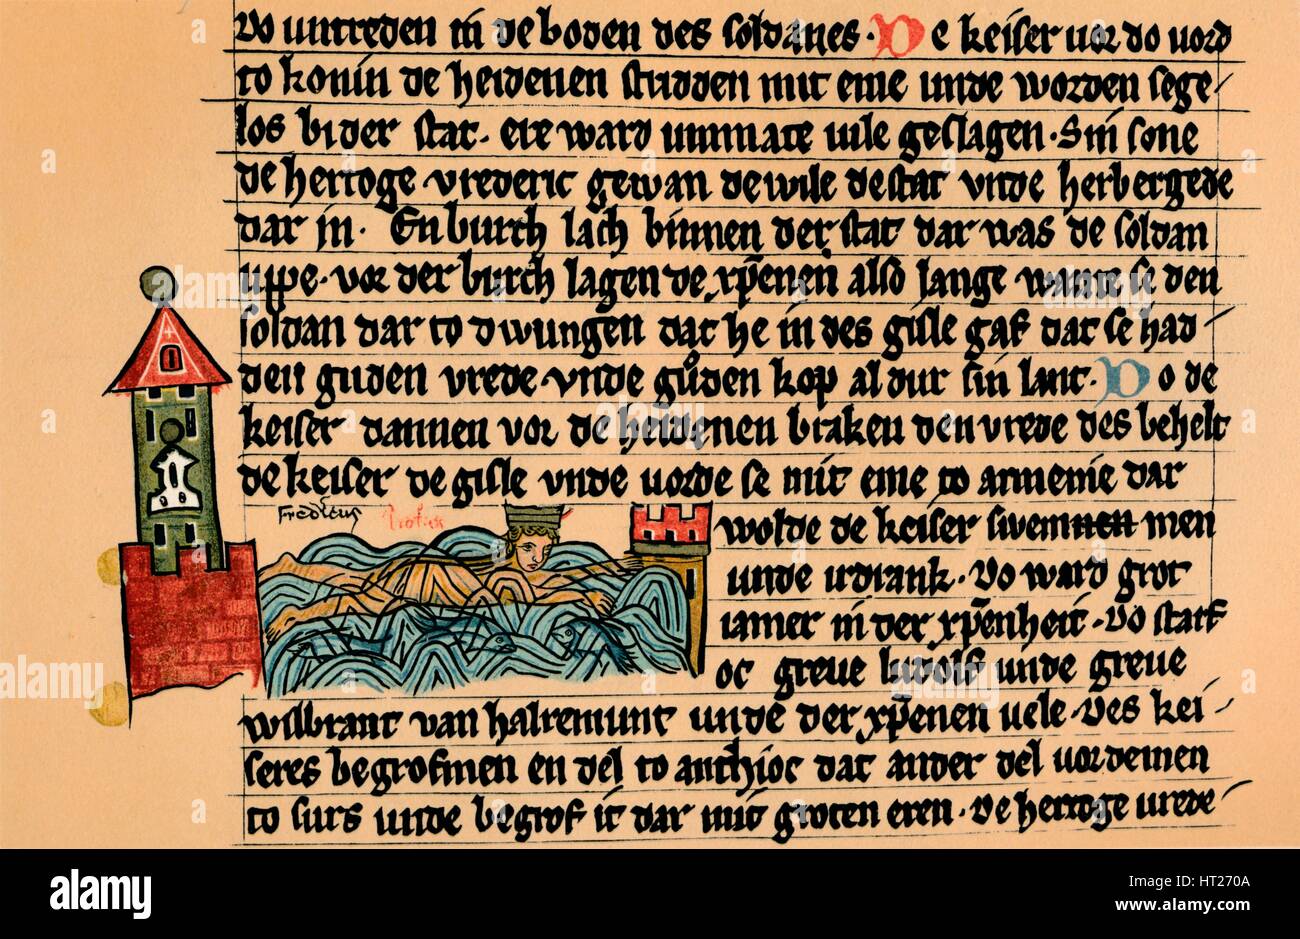 Do untreden in de boden des soldanes. De keiser vor do vord
to konin de heidenen stridden mit eme unde worden sege-
los bi der stat. ere ward unmate vile geslagen. Sin sone
de hertoge vrederic gewan de wile de stat vnde herbergede
dar in. En burch lach binnen der stat dar was de soldan
uppe. vor der burch lagen de xp̄enen also lange wante se den
soldan dar to dwungen dat he in des gisle gaf dat se had-
den guden vrede. vnde gůden kop al dur sin lant. Do de
keiser dannen vor de heidenen braken den vrede des behelt
de keiser de gisle vnde vorde se mit eme to armenie dar
Fredicus
wolde de keiser swemmen men
unde irdrank. Do ward grot
iamer in der xp̄enheit. Do starf
oc greue ludolf unde greue
wilbrant van halremunt unde der xp̄enen uele. Des kei-
seres begrofmen en del to anthioc dat ander del vordemen
to surs unde begrof it dar mit groten eren. De hertoge vrede-
alamy
Image ID: HT270A
www.alamy.com
a
a
a
a
a
a
a
a